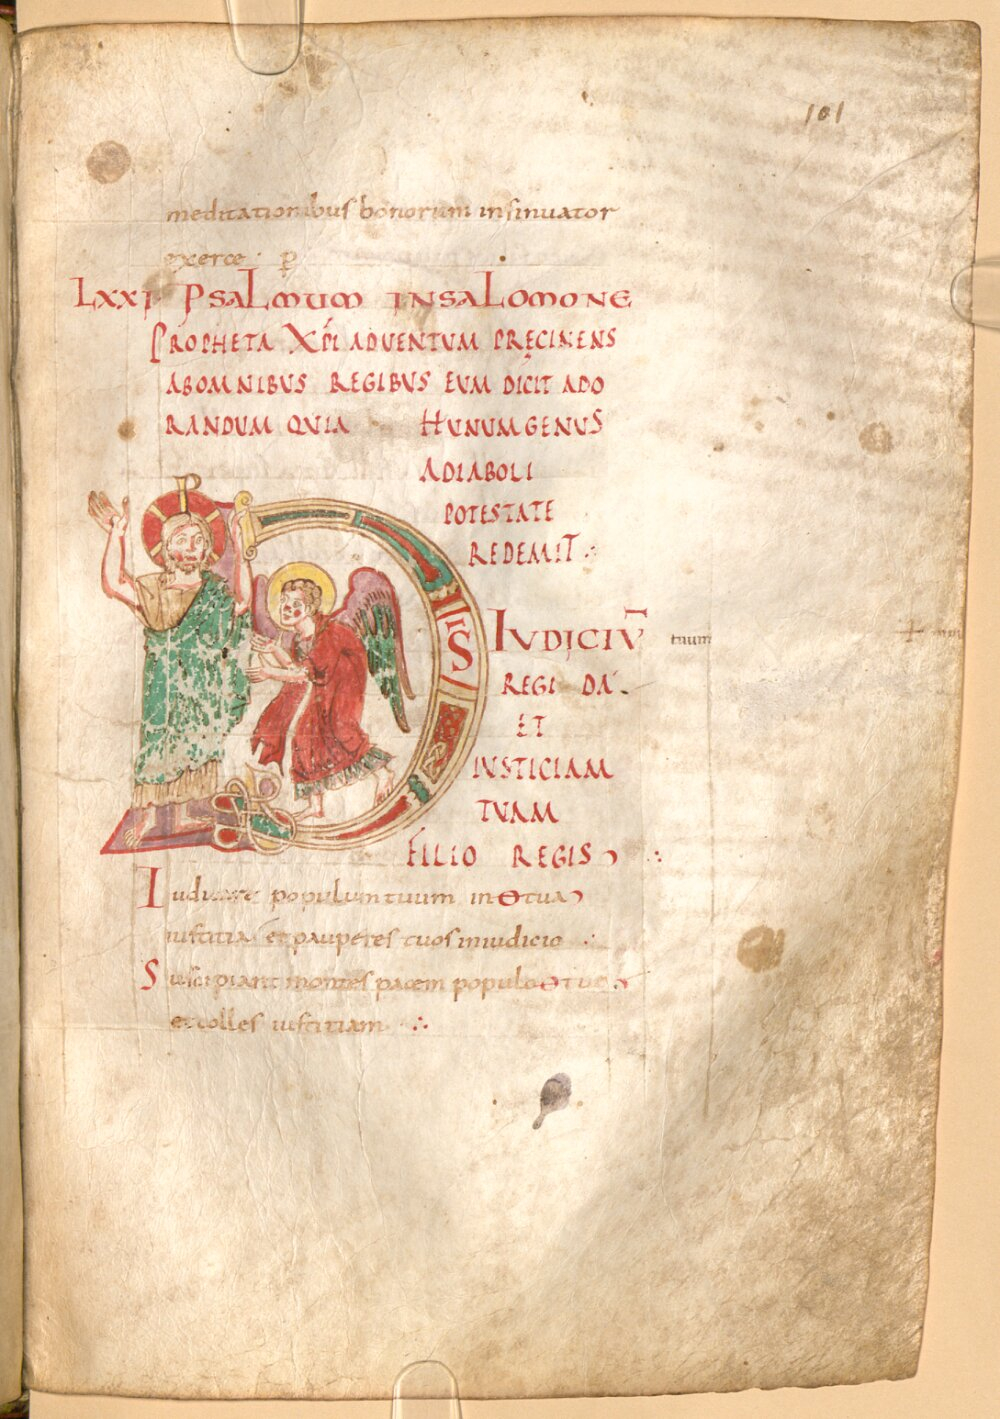 101
meditationibus bonorum insinuator
exerce · p̄
LXXI PSALMUM INSALOMONE
PROPHETA XP̄I ADVENTUM PRĘCINENS
ABOMNIBUS REGIBUS EUM DICIT ADO
RANDUM QUIA HUNUMGENUS
ADIABOLI
POTESTATE
REDEMIT
DS IUDICIŪ tuum
REGI DA
ET
IUSTICIAM
TUAM
FILIO REGIS
Iudicare populumtuum in tua
iustitia et pauperes tuos iniudicio
Suscipiant montes pacem populo
et colles iustitiam